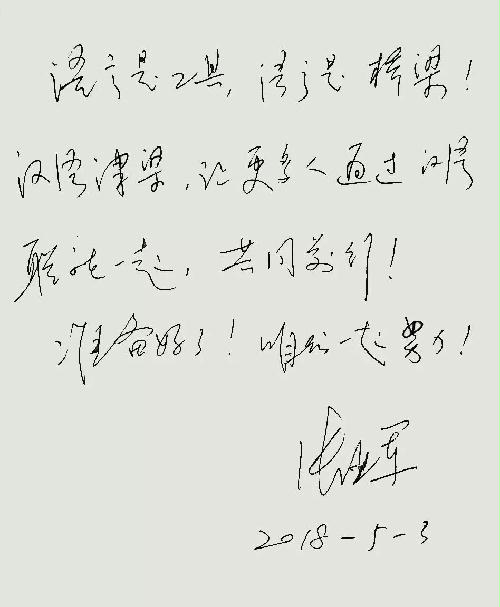 语言是工具，语言是桥梁！
汉语津梁，让更多人通过汉语
联在一起，共同前行！
准备好了！咱们一起努力！
张亚军
2018-5-3